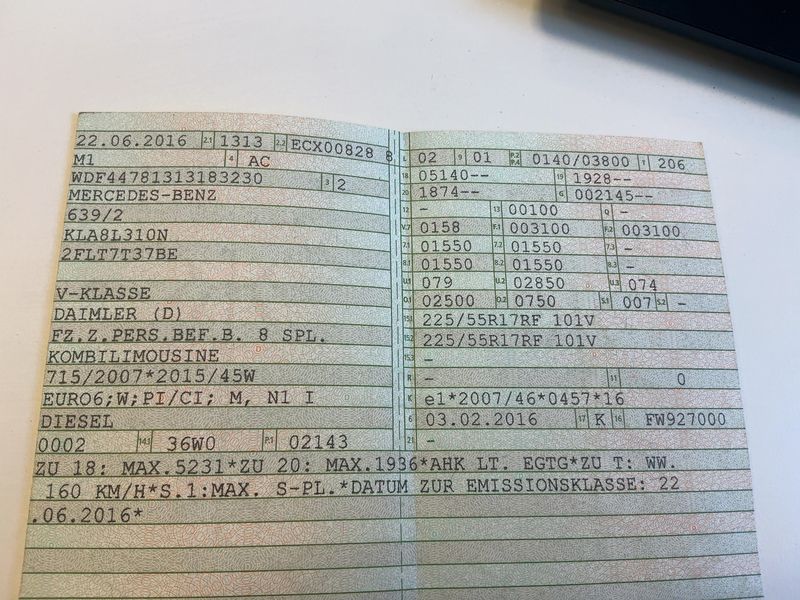 22.06.2016 2.1 1313 2.2 ECX00828 8
M1 4 AC
WDF44781313183230 3 2
MERCEDES-BENZ
639/2
KLA8L310N
2FLT7T37BE
V-KLASSE
DAIMLER (D)
FZ.Z.PERS.BEF.B. 8 SPL.
KOMBILIMOUSINE
715/2007*2015/45W
EURO6;W;PI/CI; M, N1 I
DIESEL
0002 14.1 36W0 P.1 02143
L 02 9 01 P.2 P.4 0140/03800 T 206
18 05140-- 19 1928--
20 1874-- G 002145--
12 - 13 00100 Q -
V.7 0158 F.1 003100 F.2 003100
7.1 01550 7.2 01550 7.3 -
8.1 01550 8.2 01550 8.3 -
U.1 079 U.2 02850 U.3 074
O.1 02500 O.2 0750 S.1 007 S.2 -
15.1 225/55R17RF 101V
15.2 225/55R17RF 101V
15.3 -
R - 11 0
K e1*2007/46*0457*16
6 03.02.2016 17 K 16 FW927000
21 -
ZU 18: MAX.5231*ZU 20: MAX.1936*AHK LT. EGTG*ZU T: WW.
160 KM/H*S.1:MAX. S-PL.*DATUM ZUR EMISSIONSKLASSE: 22
.06.2016*